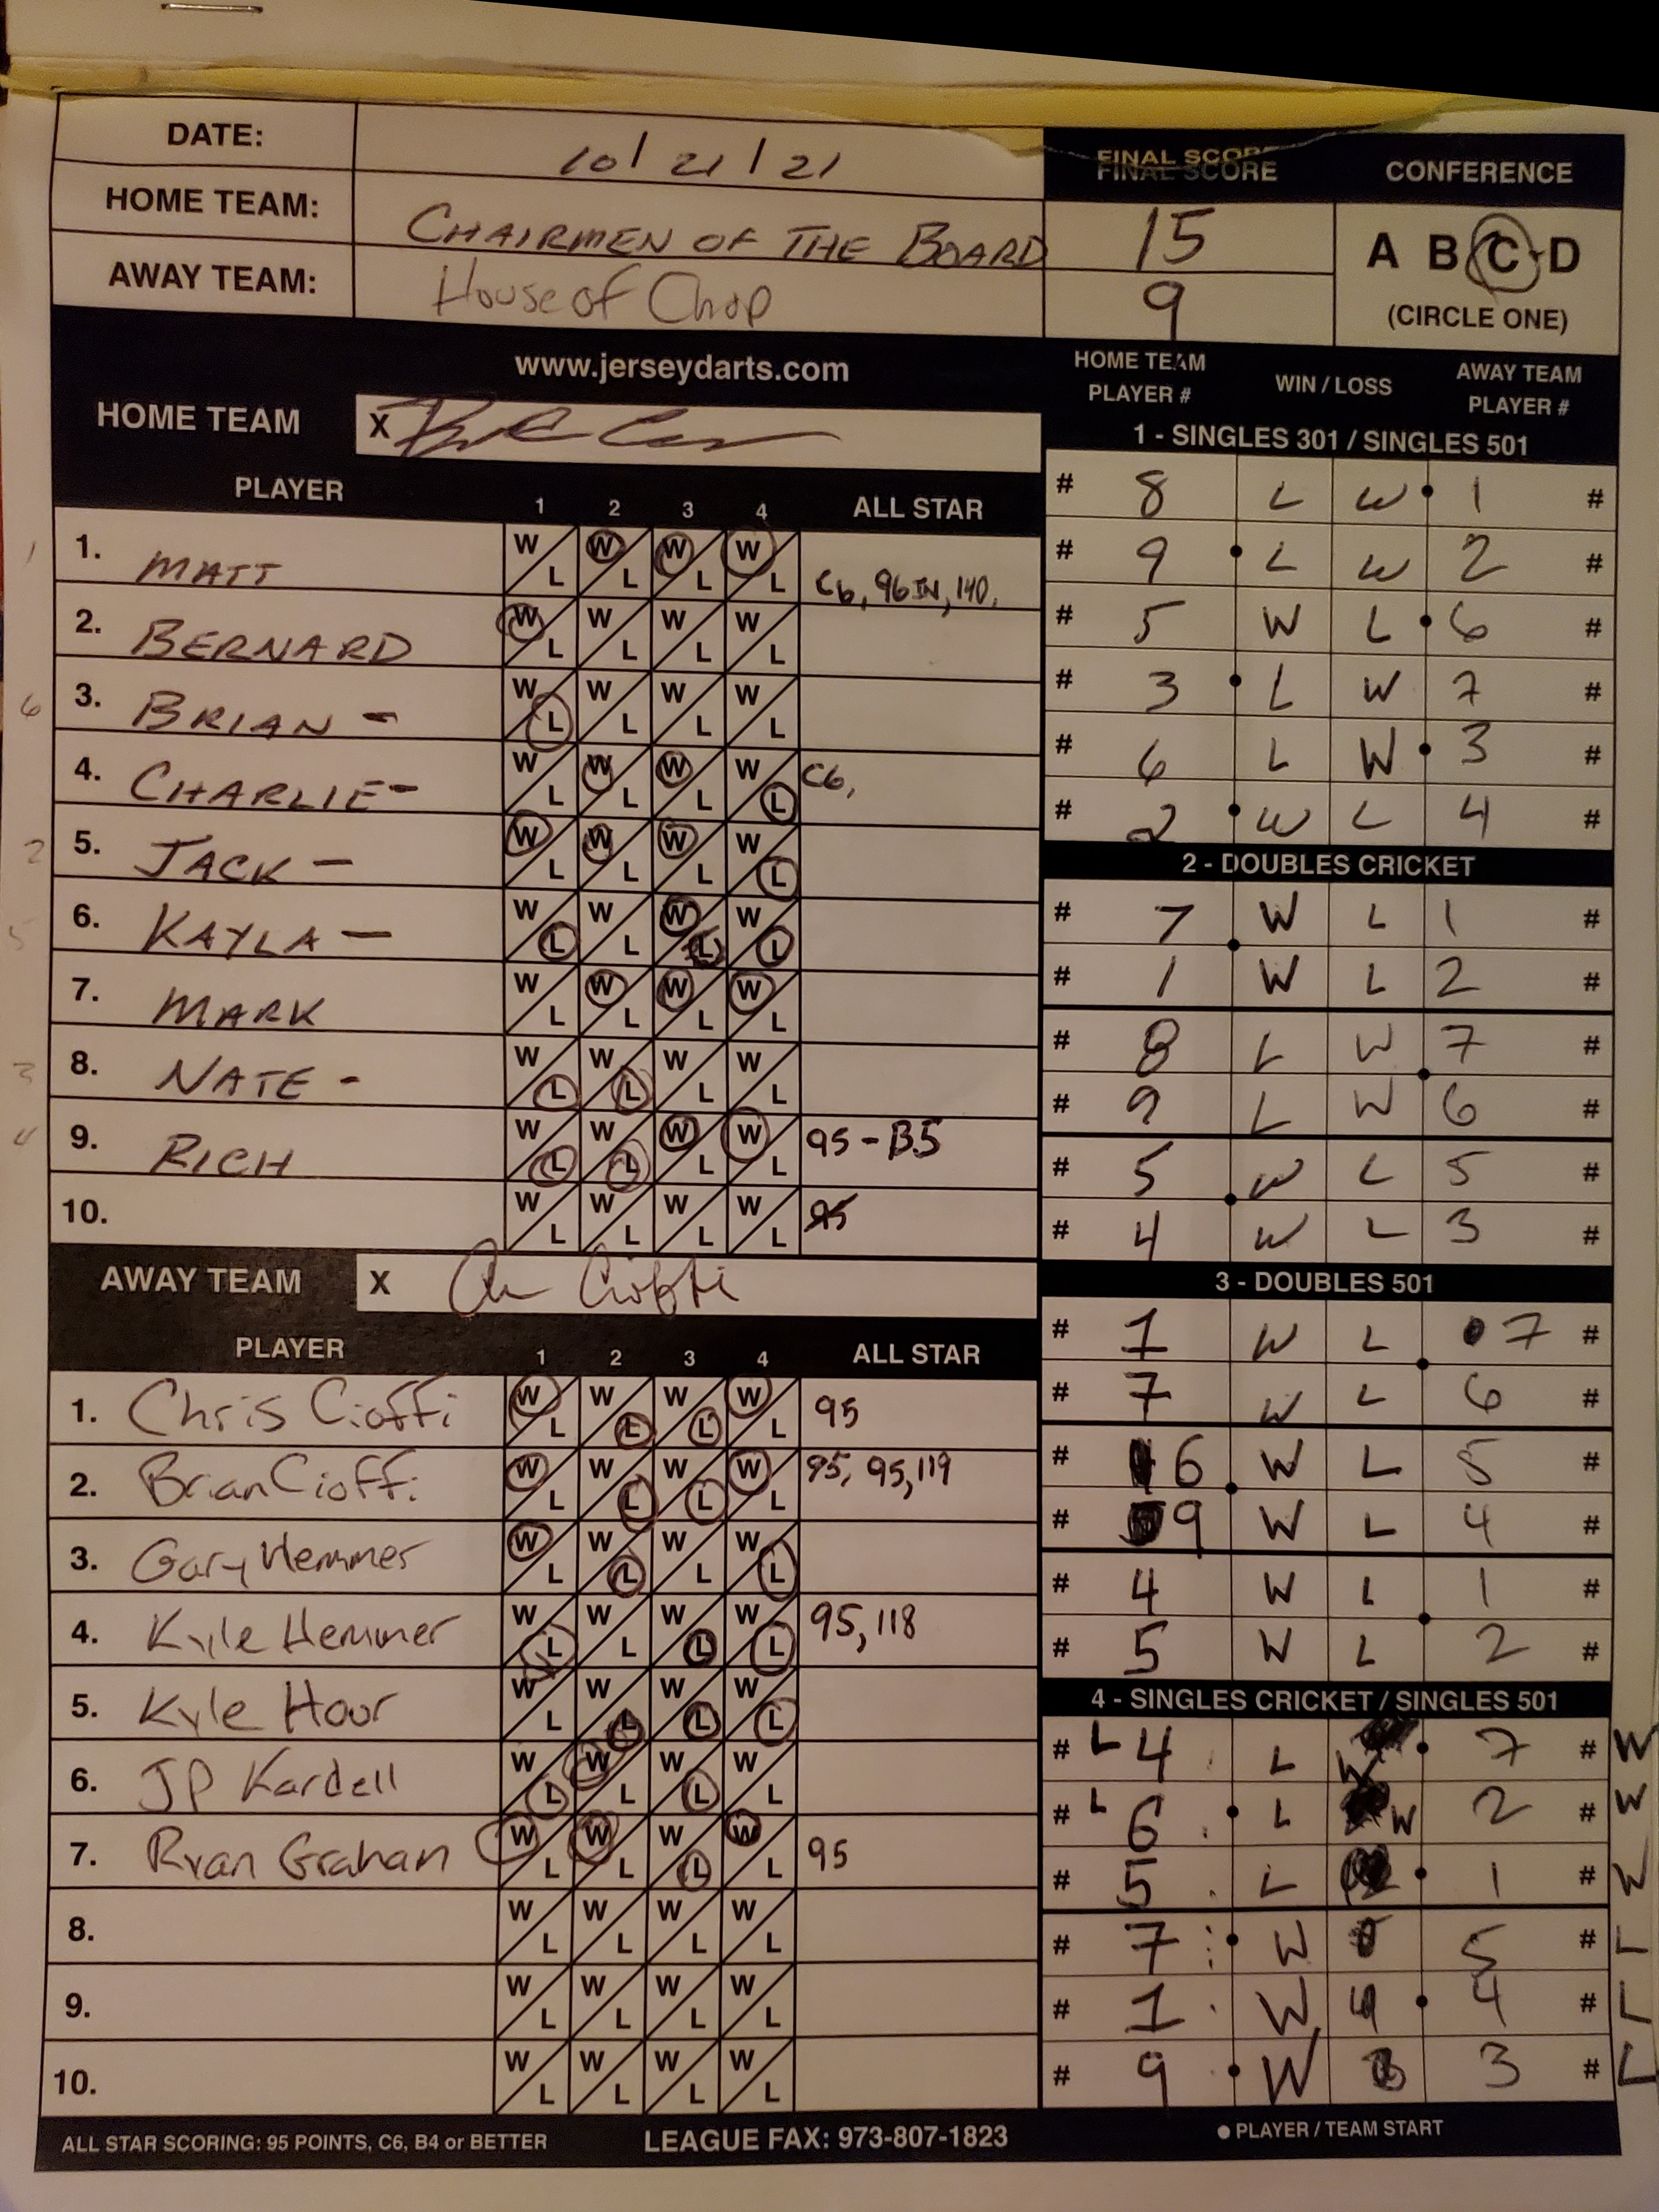 DATE: 10/21/21
HOME TEAM: CHAIRMEN OF THE BOARD
AWAY TEAM: House of Chop
FINAL SCORE
FINAL SCORE
15
9
CONFERENCE
A B C D
(CIRCLE ONE)
www.jerseydarts.com
HOME TEAM X
PLAYER 1 2 3 4 ALL STAR
1 1. MATT W L W L W L W L C6, 96 IN, 140,
2. BERNARD W L W L W L W L
6 3. BRIAN - W L W L W L W L
4. CHARLIE - W L W L W L W L C6,
2 5. JACK - W L W L W L W L
5 6. KAYLA - W L W L W L W L
7. MARK W L W L W L W L
3 8. NATE - W L W L W L W L
4 9. RICH W L W L W L W L 95 - B5
10. W L W L W L W L 95
AWAY TEAM X
PLAYER 1 2 3 4 ALL STAR
1. Chris Cioffi W L W L W L W L 95
2. Brian Cioffi W L W L W L W L 95, 95, 119
3. Gary Hemmer W L W L W L W L
4. Kyle Hemmer W L W L W L W L 95, 118
5. Kyle Hour W L W L W L W L
6. JP Kardell W L W L W L W L
7. Ryan Graham W L W L W L W L 95
8. W L W L W L W L
9. W L W L W L W L
10. W L W L W L W L
ALL STAR SCORING: 95 POINTS, C6, B4 or BETTER
LEAGUE FAX: 973-807-1823
HOME TEAM PLAYER #
WIN / LOSS
AWAY TEAM PLAYER #
1 - SINGLES 301 / SINGLES 501
# 8 L W 1 #
# 9 L W 2 #
# 5 W L 6 #
# 3 L W 7 #
# 6 L W 3 #
# 2 W L 4 #
2 - DOUBLES CRICKET
# 7 W L 1 #
# 1 W L 2 #
# 8 L W 7 #
# 9 L W 6 #
# 5 W L 5 #
# 4 W L 3 #
3 - DOUBLES 501
# 1 W L 7 #
# 7 W L 6 #
# 6 W L 5 #
# 9 W L 4 #
# 4 W L 1 #
# 5 W L 2 #
4 - SINGLES CRICKET / SINGLES 501
# L 4 L 7 # W
# L 6 L W 2 # W
# 5 L 1 # W
# 7 W 5 # L
# 1 W 4 # L
# 9 W 3 # L
PLAYER / TEAM START